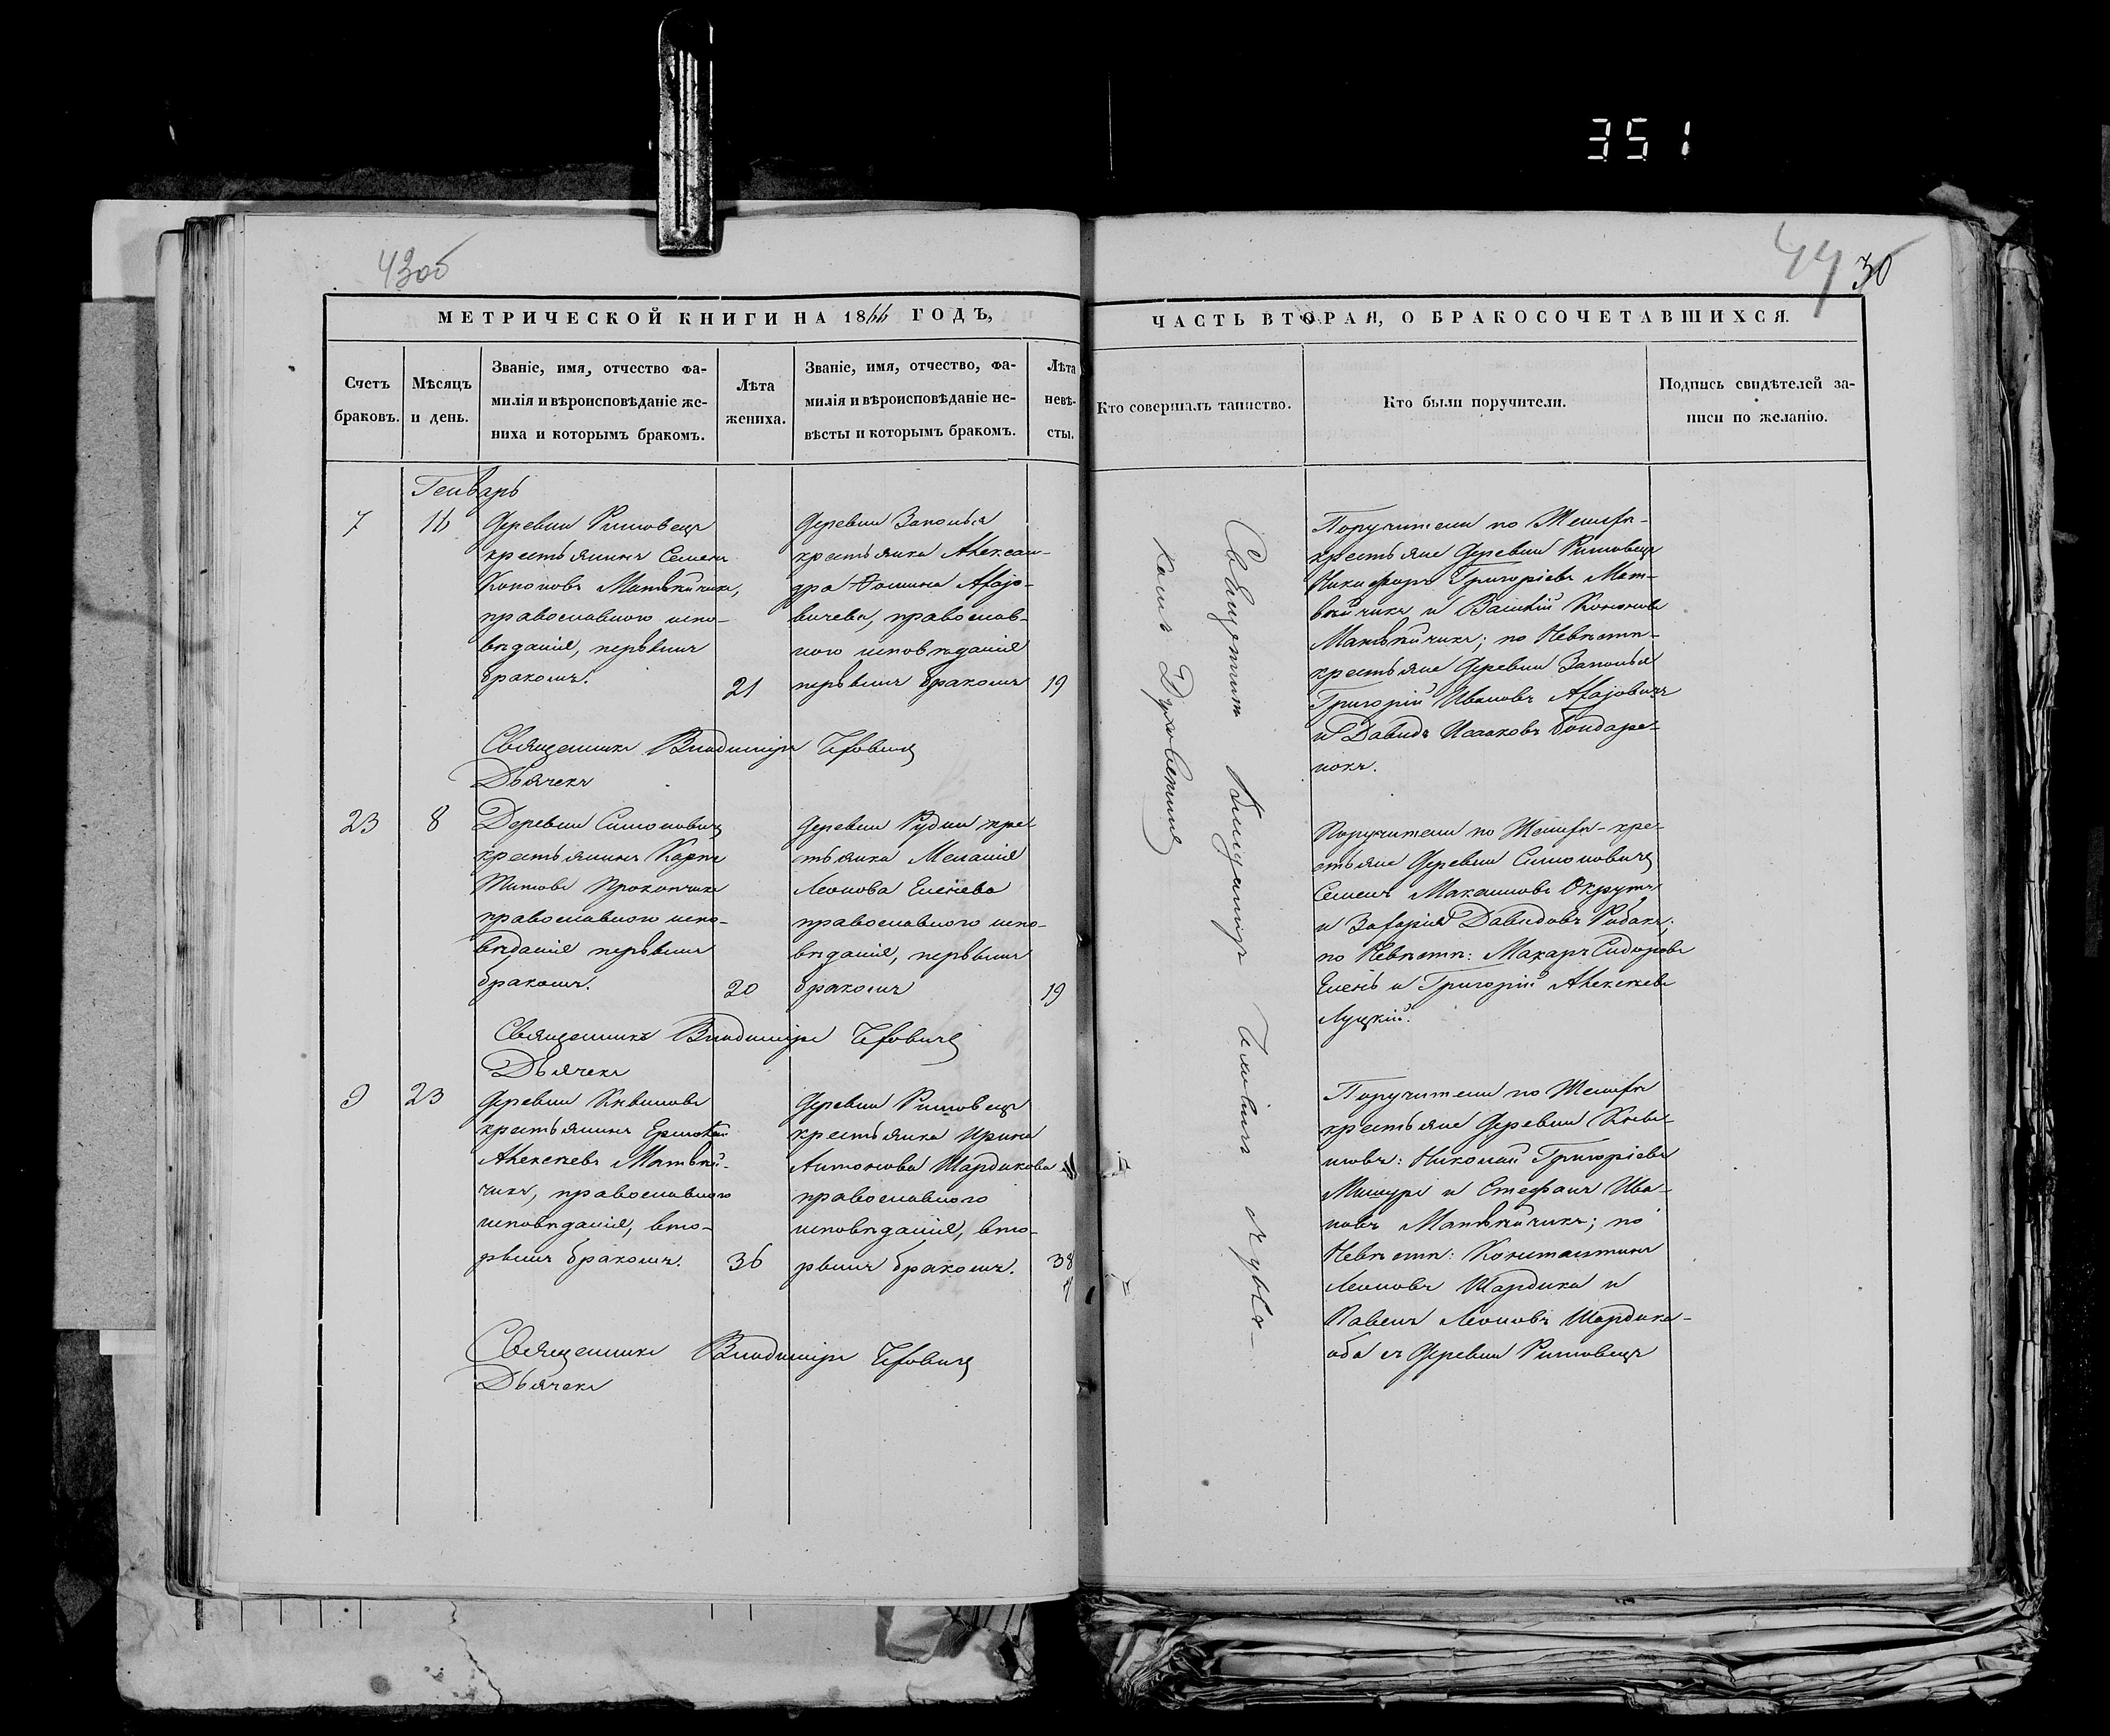 351
43об
44 30
МЕТРИЧЕСКОЙ КНИГИ НА 1866 ГОДЪ,
Счетъ браковъ.
Мѣсяцъ и день.
Званіе, имя, отчество фа-
милія и вѣроисповѣданіе же-
ниха и которымъ бракомъ.
Лѣта
жениха.
Званіе, имя, отчество, фа-
милія и вѣроисповѣданіе не-
вѣсты и которымъ бракомъ.
Лѣта
невѣ-
сты.
Генварь
7
16
Деревни Римовецъ
крестьянинъ Семенъ
Кононовъ Матвѣйчикъ,
православного испо-
вѣданія, первымъ
бракомъ.
21
Деревни Заполья
крестьянка Алексан-
дра Фомина
православ-
ного исповѣданія
первымъ бракомъ
19
Священникъ Владиміръ
Дьячекъ
23
8
Деревни Симоновичъ
крестьянинъ Карпъ
Титовъ Прокопчикъ
православного испо-
вѣданія первымъ
бракомъ.
20
Деревни Рудни кре-
стьянка Меланія
Леонова
православного испо-
вѣданія, первымъ
бракомъ
19
Священникъ Владиміръ
Дьячекъ
9
23
Деревни
крестьянинъ Ермолай
Алексѣевъ Матвѣй-
чикъ, православного
исповѣданія, вто-
рымъ бракомъ.
36
Деревни Римовецъ
крестьянка Ирина
Антонова Шардыкова
православного
исповѣданія, вто-
рымъ бракомъ.
38
Священникъ Владиміръ
Дьячекъ
ЧАСТЬ ВТОРАЯ, О БРАКОСОЧЕТАВШИХСЯ.
Кто совершалъ таинство.
Кто были поручители.
Подпись свидѣтелей за-
писи по желанію.
Поручители по Женихѣ-
крестьяне Деревни Римовецъ
Никифоръ Григоріевъ Мат-
вѣйчикъ и Василій Кононовъ
Матвѣйчикъ; по Невѣстѣ-
крестьяне Деревни Заполья
Григорій Ивановъ
и Давидъ Исааковъ Бондаре-
нокъ.
Поручители по Женихѣ - кре-
стьяне Деревни Симоновичъ
Семенъ Максимовъ Окрутъ
и Захарія Давидовъ Рабакъ;
по Невѣстѣ: Макаръ Сидоровъ
и Григорій Алексѣевъ
Луцкій.
Поручители по Женихѣ
крестьяне Деревни
Николай Григоріевъ
и Стефанъ Ива-
новъ Матвѣйчикъ; по
Невѣстѣ: Константинъ
Леоновъ Шардыка и
Павелъ Леоновъ Шардыка-
оба съ Деревни Римовецъ